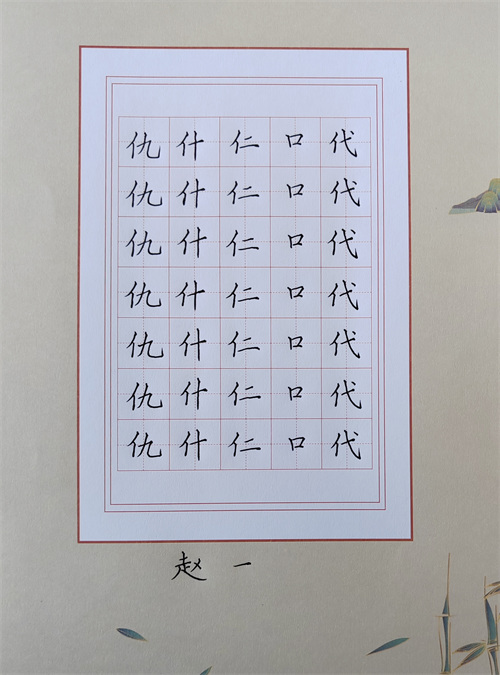 仇什仁口代
仇什仁口代
仇什仁口代
仇什仁口代
仇什仁口代
仇什仁口代
仇什仁口代
赵一